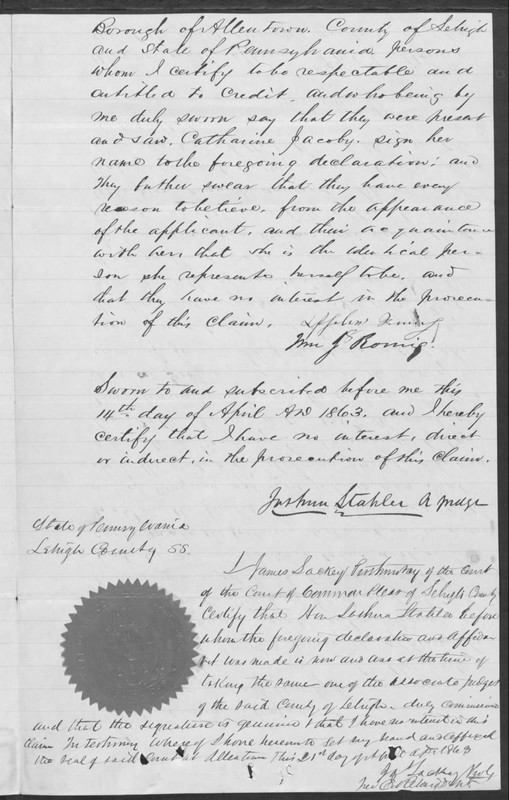 Borough of Allentown. County of Lehigh
and State of Pennsylvania persons
whom I certify to be respectable and
entitled to credit, and who being by
me duly sworn say that they were present
and saw. Catharine Jacoby. sign her
name to the foregoing declaration; and
they further swear that they have every
reason to believe. from the appearance
of the applicant, and their acquaintance
with her, that she is the identical per-
son she represents herself to be, and
that they have no interest in the prosecu-
tion of this Claim.
Wm J. Romig
Sworn to and subscribed before me this
14th day of April AD 1863. and I hereby
certify that I have no interest, direct
or indirect, in the prosecution of this Claim.
Joshua Stahler A Judge
State of Pennsylvania
Lehigh County SS.
I James Lackey Prothonotary of the Court
of the Court of Common Pleas of Lehigh County
Certify that Hon Joshua Stahler before
whom the foregoing declaration and Affida-
vit was made is now and was at the time of
taking the same one of the associate Judges
of the said County of Lehigh, duly commissioned
and that the signature is genuine & that I have no interest in this
claim In testimony Whereof I have hereunto set my hand and affixed
the seal of said Court at Allentown This 21st day of AD 1863
Jas Lackey